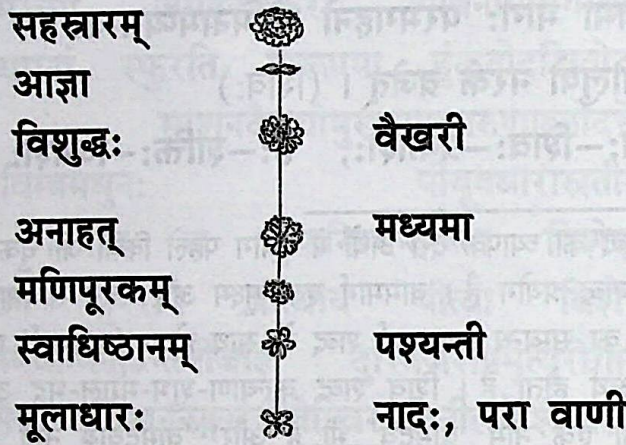 सहस्रारम्
आज्ञा
विशुद्धः वैखरी
अनाहत् मध्यमा
मणिपूरकम्
स्वाधिष्ठानम् पश्यन्ती
मूलाधारः नादः, परा वाणी